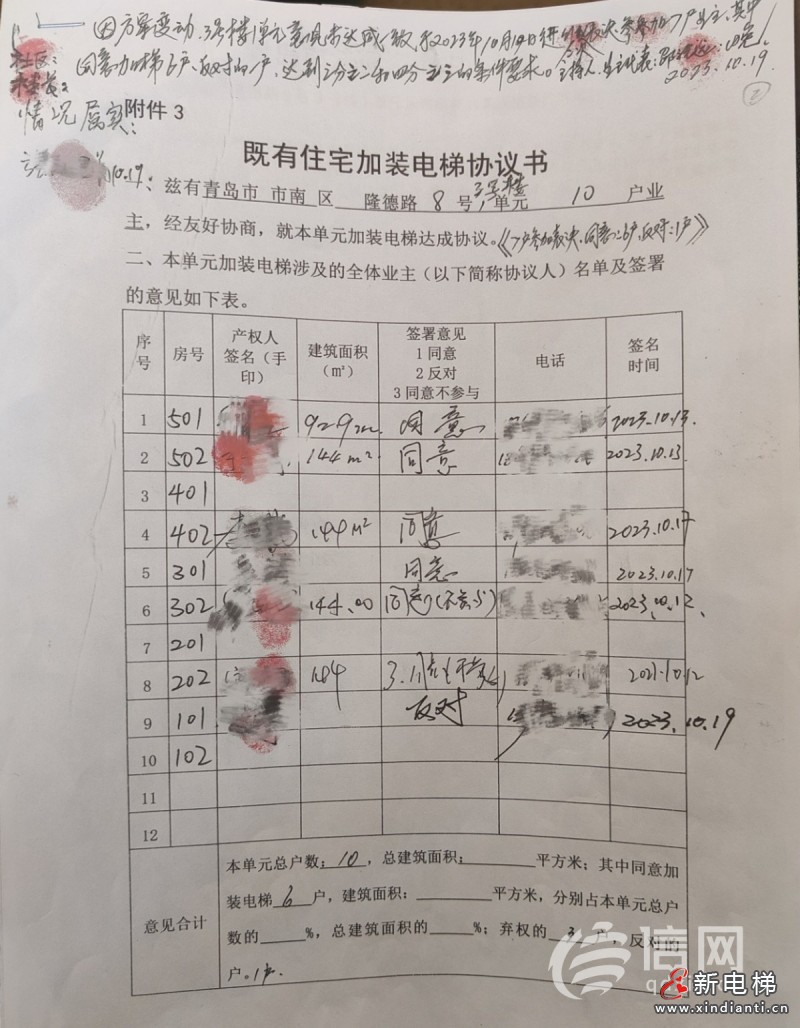 因方案变动,3号楼1单元意见未达成一致,于2023年10月19日进行表决,参加7户业主,其中
同意加梯6户,反对的1户,达到三分之二和四分之三的条件要求。主持人,业主代表:
2023.10.19
②
社区:
情况属实:
10.19
附件 3
既有住宅加装电梯协议书
一、兹有青岛市 市南 区 隆德路 8 号 3号楼 1 单元 10 户业
主,经友好协商,就本单元加装电梯达成协议。《7户参加表决,同意:6户,反对:1户》
二、本单元加装电梯涉及的全体业主(以下简称协议人)名单及签署
的意见如下表。
序号 房号 产权人签名(手印) 建筑面积(㎡) 签署意见 1 同意 2 反对 3 同意不参与 电话 签名时间
1 501 同意 2023.10.13
2 502 144m² 同意 2023.10.13
3 401
4 402 144M² 同意 2023.10.17
5 301 同意 2023.10.17
6 302 144.00 同意(不参与) 2023.10.12.
7 201
8 202 144 3. 2021.10.12
9 101 反对 2023.10.19
10 102
11
12
意见合计
本单元总户数:10,总建筑面积:______平方米;其中同意加
装电梯 6 户,建筑面积:______平方米,分别占本单元总户
数的____%,总建筑面积的____%;弃权的 3 户,反对的
户。1户.
信网
新电梯
www.xindianti.cn